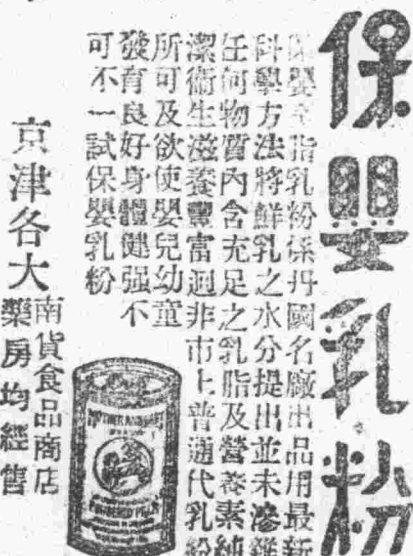 保嬰乳粉
保嬰全脂乳粉係丹國名廠出品用最新
科學方法將鮮乳之水分提出並未滲雜
任何物質內含充足之乳脂及營養素純
潔衛生滋養豐富迥非市上普通代乳粉
所可及欲使嬰兒幼童
發育良好身體健强不
可不一試保嬰乳粉
京津各大
南貨食品商店
藥房均經售